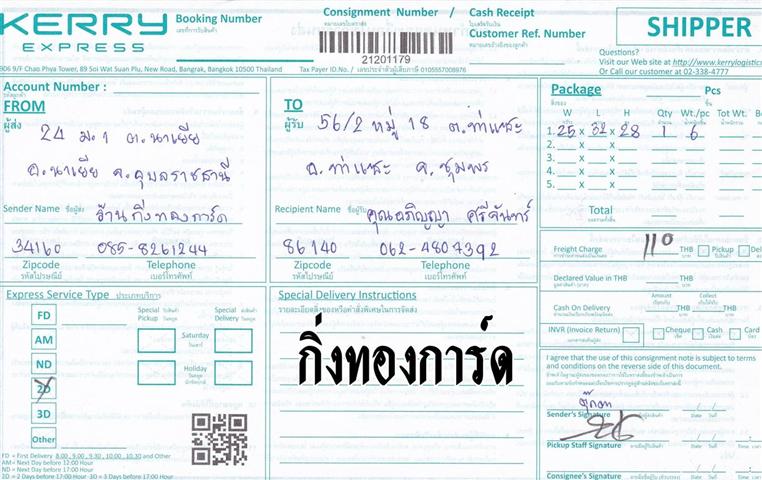 KERRY
EXPRESS
Booking Number
เลขที่การรับสินค้า
Consignment Number /
หมายเลขใบตราส่ง
21201179
Cash Receipt
ใบเสร็จรับเงิน
Customer Ref. Number
หมายเลขอ้างอิงของลูกค้า
SHIPPER
Questions?
Visit our Web site at http://www.kerrylogistic
Or Call our customer at 02-338-4777
906 9/F Chao Phya Tower, 89 Soi Wat Suan Plu, New Road, Bangrak, Bangkok 10500 Thailand
Tax Payer ID.No./ เลขประจำตัวผู้เสียภาษี 0105557008976
Account Number :
รหัสลูกค้า
FROM
ผู้ส่ง
24 ม.1 ต.นาเยีย
อ.นาเยีย จ.อุบลราชธานี
Sender Name ชื่อผู้ส่ง
ร้านกิ่งทองการ์ด
34160 085-8261244
Zipcode Telephone
รหัสไปรษณีย์ เบอร์โทรศัพท์
TO
ผู้รับ
56/2 หมู่ 18 ต.ท่าแซะ
อ.ท่าแซะ จ.ชุมพร
Recipient Name ชื่อผู้รับ
คุณอภิญญา ศรีจันทร์
86140 062-4807392
Zipcode Telephone
รหัสไปรษณีย์ เบอร์โทรศัพท์
Package Pcs
สิ่งของ ชิ้น
W L H Qty Wt./pc Tot Wt.
1. 25 x 32 x 28 1 6
2. x x
3. x x
4. x x
5. x x
Total
Freight Charge 110 THB Pickup Del
Declared Value in THB THB
Amount Collect
Cash On Delivery THB THB
INVR (Invoice Return) Cheque Cash Card
เช็ค เงินสด บัตร
I agree that the use of this consignment note is subject to terms
and conditions on the reverse side of this document.
Sender's Signature
Pickup Staff Signature
Consignee's Signature
Express Service Type ประเภทบริการ
FD
AM
ND
2D
3D
Other
Special Pickup
Special Delivery
Saturday
วันเสาร์
Holiday
วันหยุด
นักขัตฤกษ์
FD = First Delivery 8.00 , 9.00 , 9.30 , 10.00 , 10.30 and Other
AM= Next Day before 12:00 Hour
ND = Next Day before 17:00 Hour
2D = 2 Days before 17:00 Hour 3D = 3 Days before 17:00 Hour
Special Delivery Instructions
รายละเอียดสิ่งของหรือคำสั่งพิเศษในการจัดส่ง
กิ่งทองการ์ด